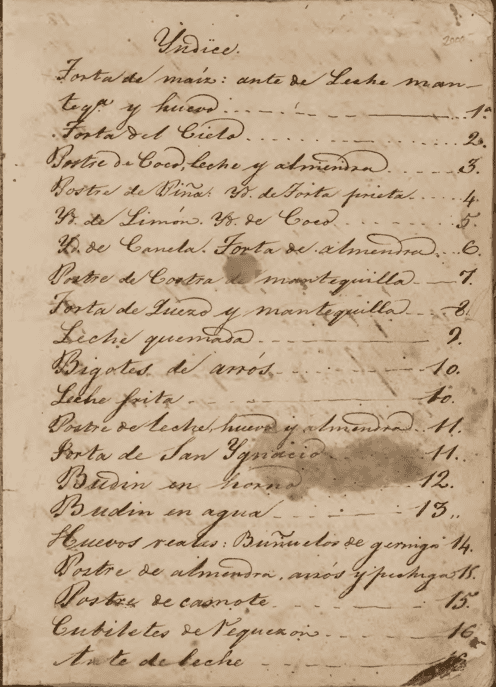 Yndice.
Torta de maíz: ante de Leche man-
teqa. y huevo 1a
Torta del Cielo 2.
Postre de Coco, leche y almendra 3.
Postre de Piña. Yd. de Torta prieta 4
Yd. de Limón. Yd. de Coco 5
Yd. de Canela. Torta de almendra 6.
Postre de Costra de mantequilla 7.
Torta de Quezo y mantequilla 8.
Leche quemada 9.
Bigotes de arrós 10.
Leche frita 10.
Postre de leche, huevo y almendra 11.
Torta de San Ygnacio 11.
Budin en horno 12.
Budin en agua 13..
Huevos reales: Buñuelos de 14.
Postre de almendra, arrós y pechuga 15.
Postre de camote 15.
Cubiletes de Requezon 16.
Ante de leche